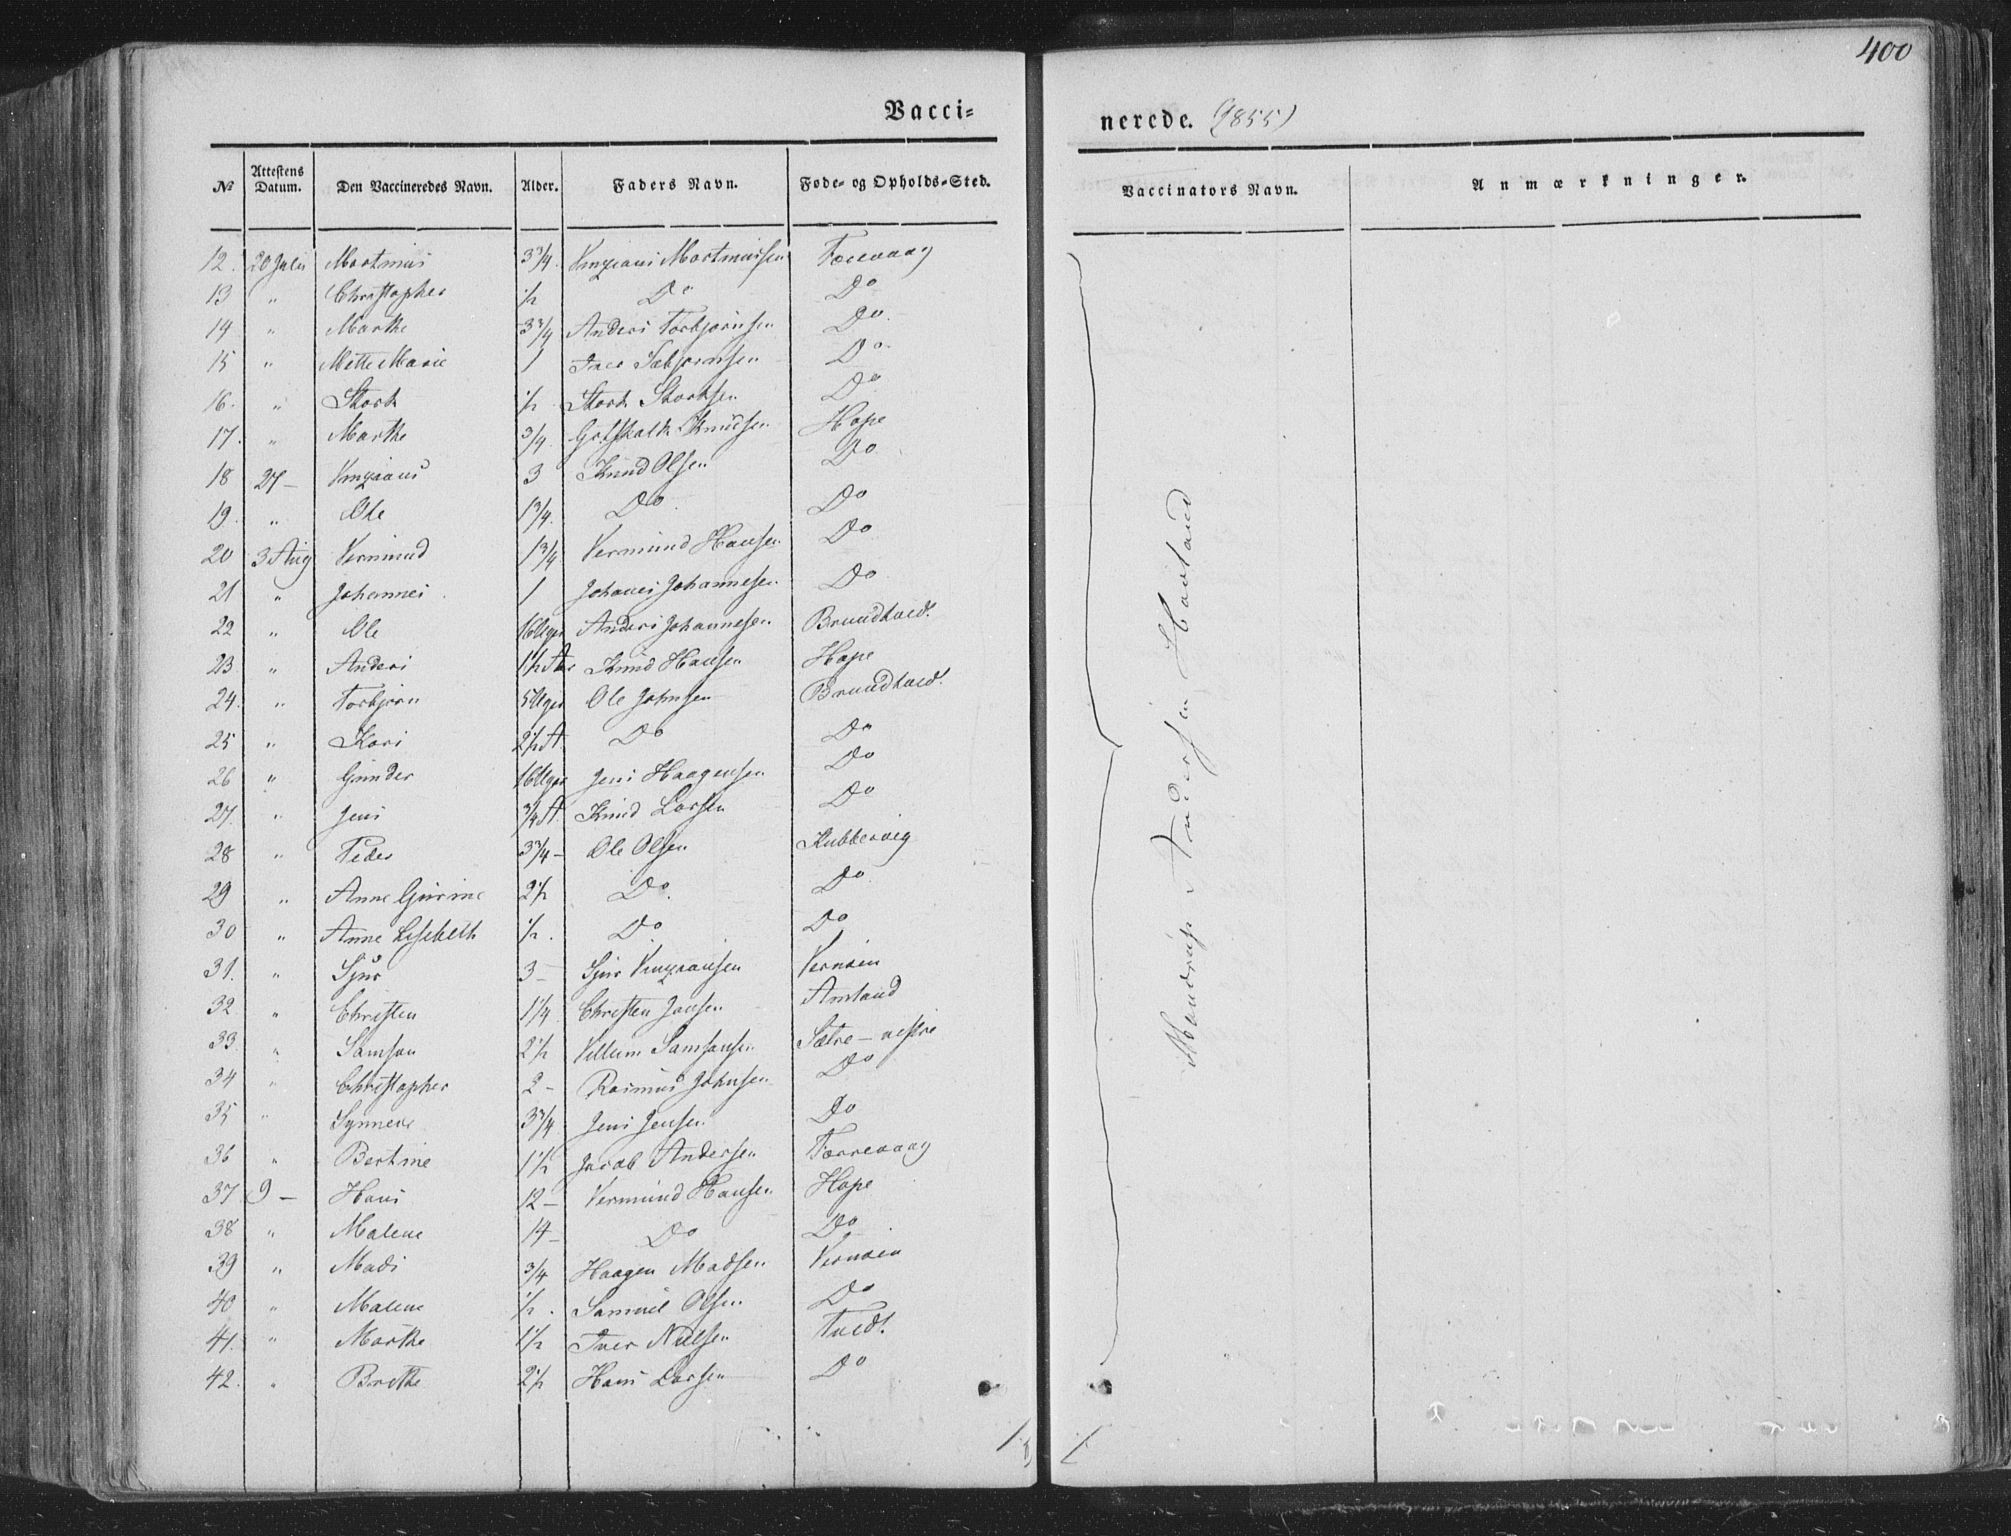 400
Vaccinerede. (1855)
No Attestens Datum. Den Vaccineredes Navn. Alder. Faders Navn. Føde- og Opholds-Sted. Vaccinators Navn. Anmærkninger.
12. 20 Juli Mortinus 3 3/4 Mortinussen
13 " Christopher 1/2 Do Do
14 " Marthe 3 3/4 Anders Torbjørnsen Do
15 " Mette Marie 1 Do
16. " Stork 1/2 Stork Storksen Do
17. " Marthe 3/4 Gotskalk Knudsen Hope
18 27 – 3 Knud Olsen Do
19. " Ole 1 3/4 Do Do
20 3 Aug Vermund 1 3/4 Vermund Hansen Do
21 " Johannes 1 Johanes Johannesen Do
22 " Ole 16 Uger Anders Johannesen Brundtved.
23 " Anders 1 1/2 Aar Knud Hansen Hope
24. " Torbjørn 5 Uger Ole Johnsen Brundtved.
25 " Kari 2 1/2 A. Do Do
26 " Gunder 16 Uger Jens Haagensen Do
27. " Jens 3/4 A. Knud Larsen Do
28 " Peder 3 3/4 – Ole Olsen Kubbervig
29 " Anne Gurine 2 1/2 Do Do
30 " Anne Lisebeth 1/2 . Do Do
31. " Sjur 3 – Sjur
32. " Christen 1 1/4 Christen Jansen Amland
33 " Samson 2 1/2 Villum Samsonsen Sætre – vestre
34 " Christopher 2 – Rasmus Johnsen Do
35 " Synneve 3 3/4 Jens Jensen Do
36 " Bertine 1 1/2 Jacob Andersen Torrevaag
37 9 – Hans 12 – Vermund Hansen Hope
38 " Malene 14 – Do Do
39 " Mads 3/4 Haagen Madsen
40 " Malene 1/2 . Samuel Olsen Do
41. " Marthe 1 1/2 Iver Nielsen Tvedt.
42. " Brithe 2 1/2 Hans Larsen Do
Mandrup Andersen Hovland